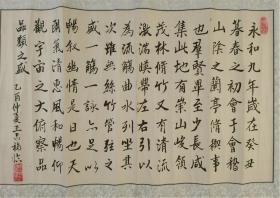 永和九年歲在癸丑
暮春之初會于會稽
山陰之蘭亭脩禊事
也群賢畢至少長咸
集此地有崇山峻領
茂林脩竹又有清流
激湍暎帶左右引以
為流觴曲水列坐其
次雖無絲竹管弦之
盛一觴一詠亦足以
暢叙幽情是日也天
朗氣清惠風和暢仰
觀宇宙之大俯察品
品類之盛 乙酉仲夏王